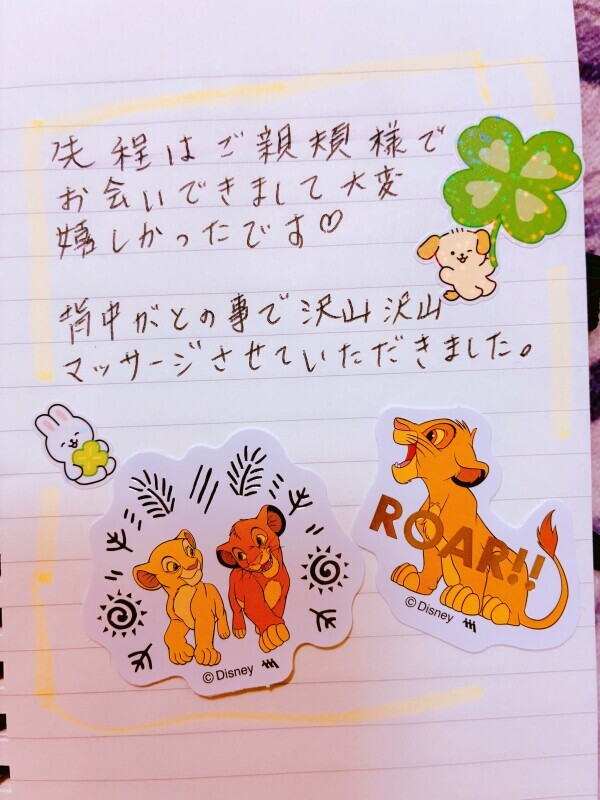 先程はご親類様で
お会いできまして大変
嬉しかったです♡
背中がとの事で沢山沢山
マッサージさせていただきました。
ROAR!!
©Disney
©Disney